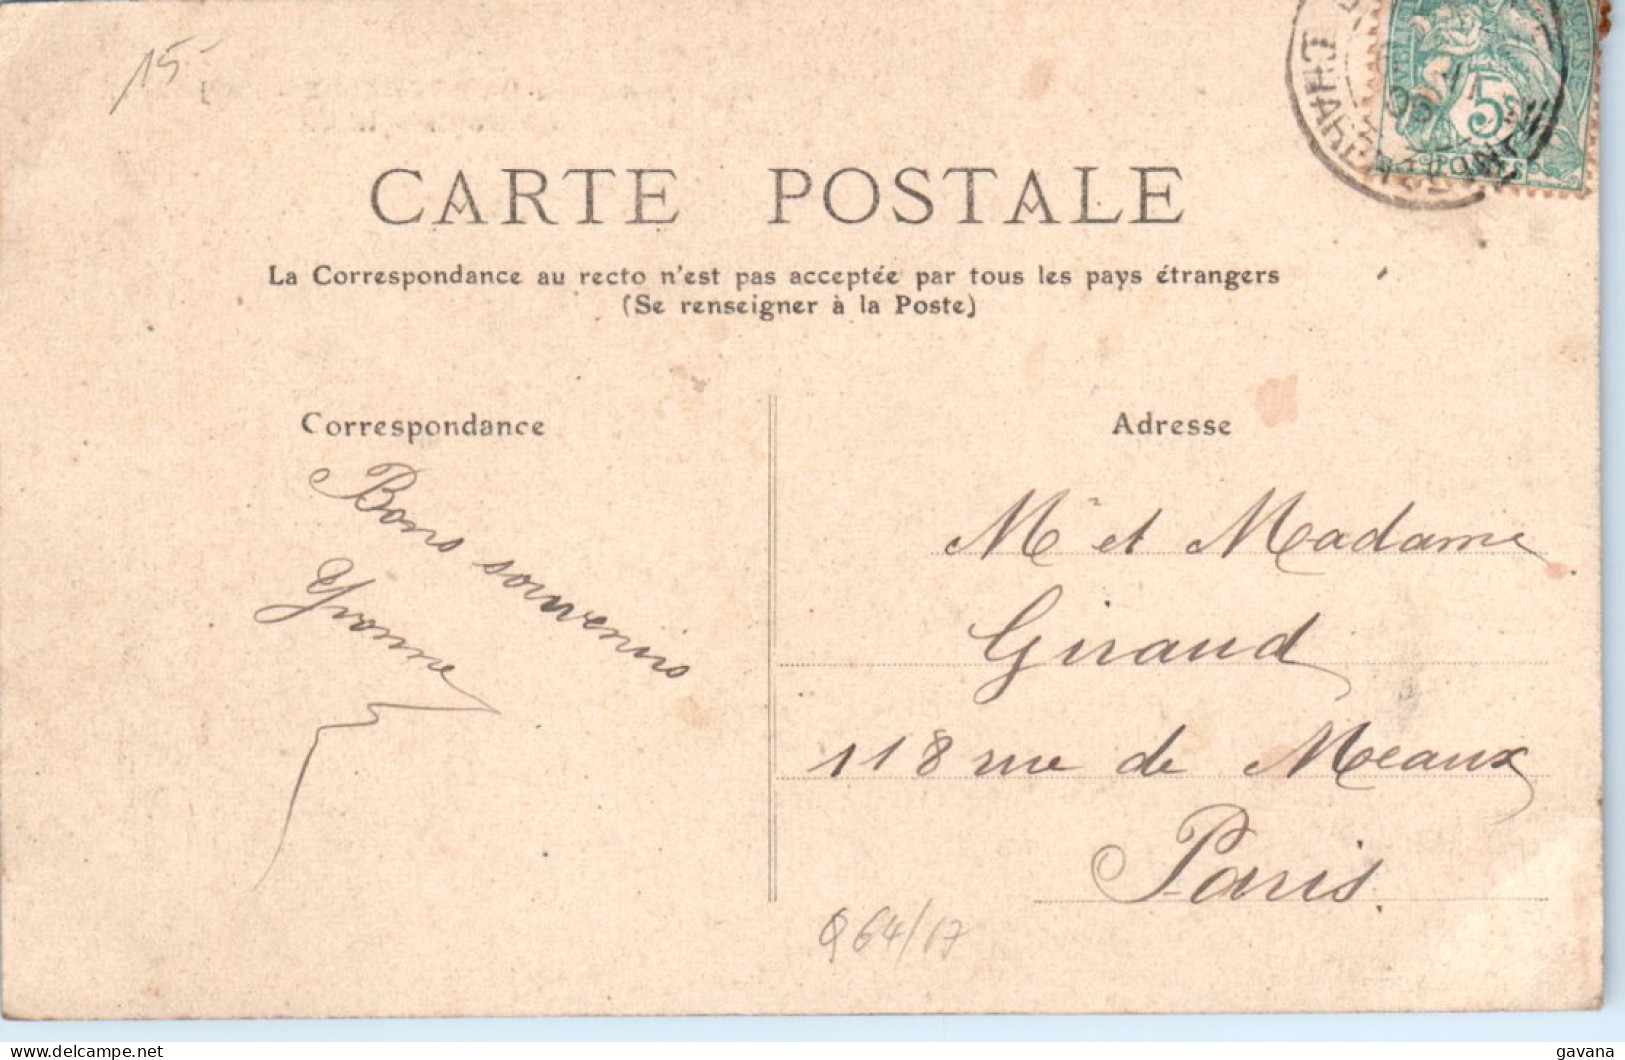 15-
CARTE POSTALE
La Correspondance au recto n'est pas acceptée par tous les pays étrangers
(Se renseigner à la Poste)
Correspondance
Bons souvenirs
Yvonne
Adresse
Mr et Madame
Giraud
118 rue de Meaux
Paris.
64/17
5
www.delcampe.net
gavana